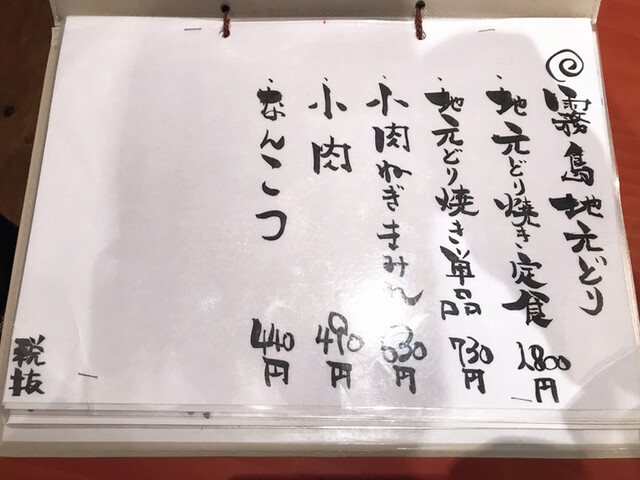 霧島地元どり
地元どり焼き定食 1,800円
地元どり焼き単品 730円
小肉ねぎまみれ 630円
小肉 490円
なんこつ 440円
税抜